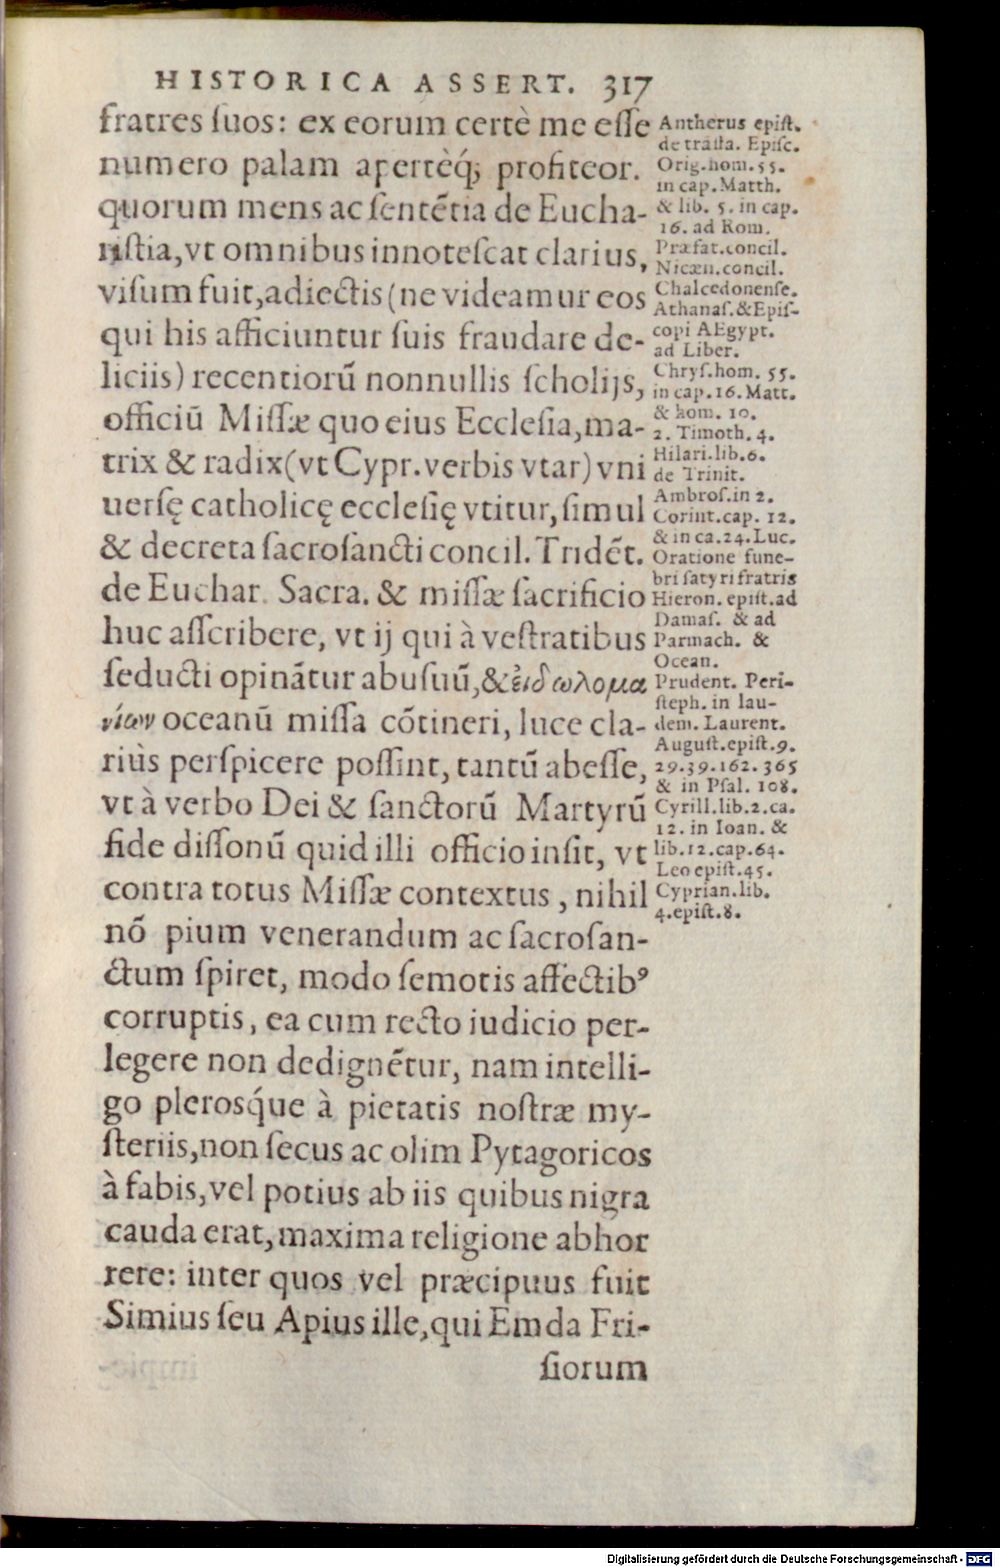 HISTORICA ASSERT. 317
fratres ſuos: ex eorum certè me eſſe
numero palam apertèq́; profiteor.
quorum mens ac ſentẽtia de Eucha-
riſtia, vt omnibus innoteſcat clarius,
viſum fuit, adiectis (ne videamur eos
qui his afficiuntur ſuis fraudare de-
liciis) recentiorũ nonnullis ſcholijs,
officiũ Miſſæ quo eius Eccleſia, ma-
trix & radix (vt Cypr. verbis vtar) vni
uerſę catholicę eccleſię vtitur, ſimul
& decreta ſacroſancti concil. Tridẽt.
de Euchar. Sacra. & miſſæ ſacrificio
huc aſſcribere, vt ij qui à veſtratibus
ſeducti opinãtur abuſuũ, & ἐιδωλομα
νίων oceanũ miſſa cõtineri, luce cla-
riùs perſpicere poſſint, tantũ abeſſe,
vt à verbo Dei & ſanctorũ Martyrũ
fide diſſonũ quid illi officio inſit, vt
contra totus Miſſæ contextus, nihil
nõ pium venerandum ac ſacroſan-
ctum ſpiret, modo ſemotis affectibꝰ
corruptis, ea cum recto iudicio per-
legere non dedignẽtur, nam intelli-
go plerosq́ue à pietatis noſtræ my-
ſteriis, non ſecus ac olim Pytagoricos
à fabis, vel potius ab iis quibus nigra
cauda erat, maxima religione abhor
rere: inter quos vel præcipuus fuit
Simius ſeu Apius ille, qui Emda Fri-
ſiorum
Antherus epiſt.
de traſla. Epiſc.
Orig. hom. 55.
in cap. Matth.
& lib. 5. in cap.
16. ad Rom.
Præfat. concil.
Nicæn. concil.
Chalcedonenſe.
Athanaſ. & Epiſ-
copi AEgypt.
ad Liber.
Chryſ. hom. 55.
in cap. 16. Matt.
& hom. 10.
2. Timoth. 4.
Hilari. lib. 6.
de Trinit.
Ambroſ. in 2.
Corint. cap. 12.
& in ca. 24. Luc.
Oratione fune-
bri ſatyri fratris
Hieron. epiſt. ad
Damaſ. & ad
Parmach. &
Ocean.
Prudent. Peri-
ſteph. in lau-
dem. Laurent.
Auguſt. epiſt. 9.
29. 39. 162. 365
& in Pſal. 108.
Cyrill. lib. 2. ca.
12. in Ioan. &
lib. 12. cap. 64.
Leo epiſt. 45.
Cyprian. lib.
4. epiſt. 8.
Digitalisierung gefördert durch die Deutsche Forschungsgemeinschaft - DFG